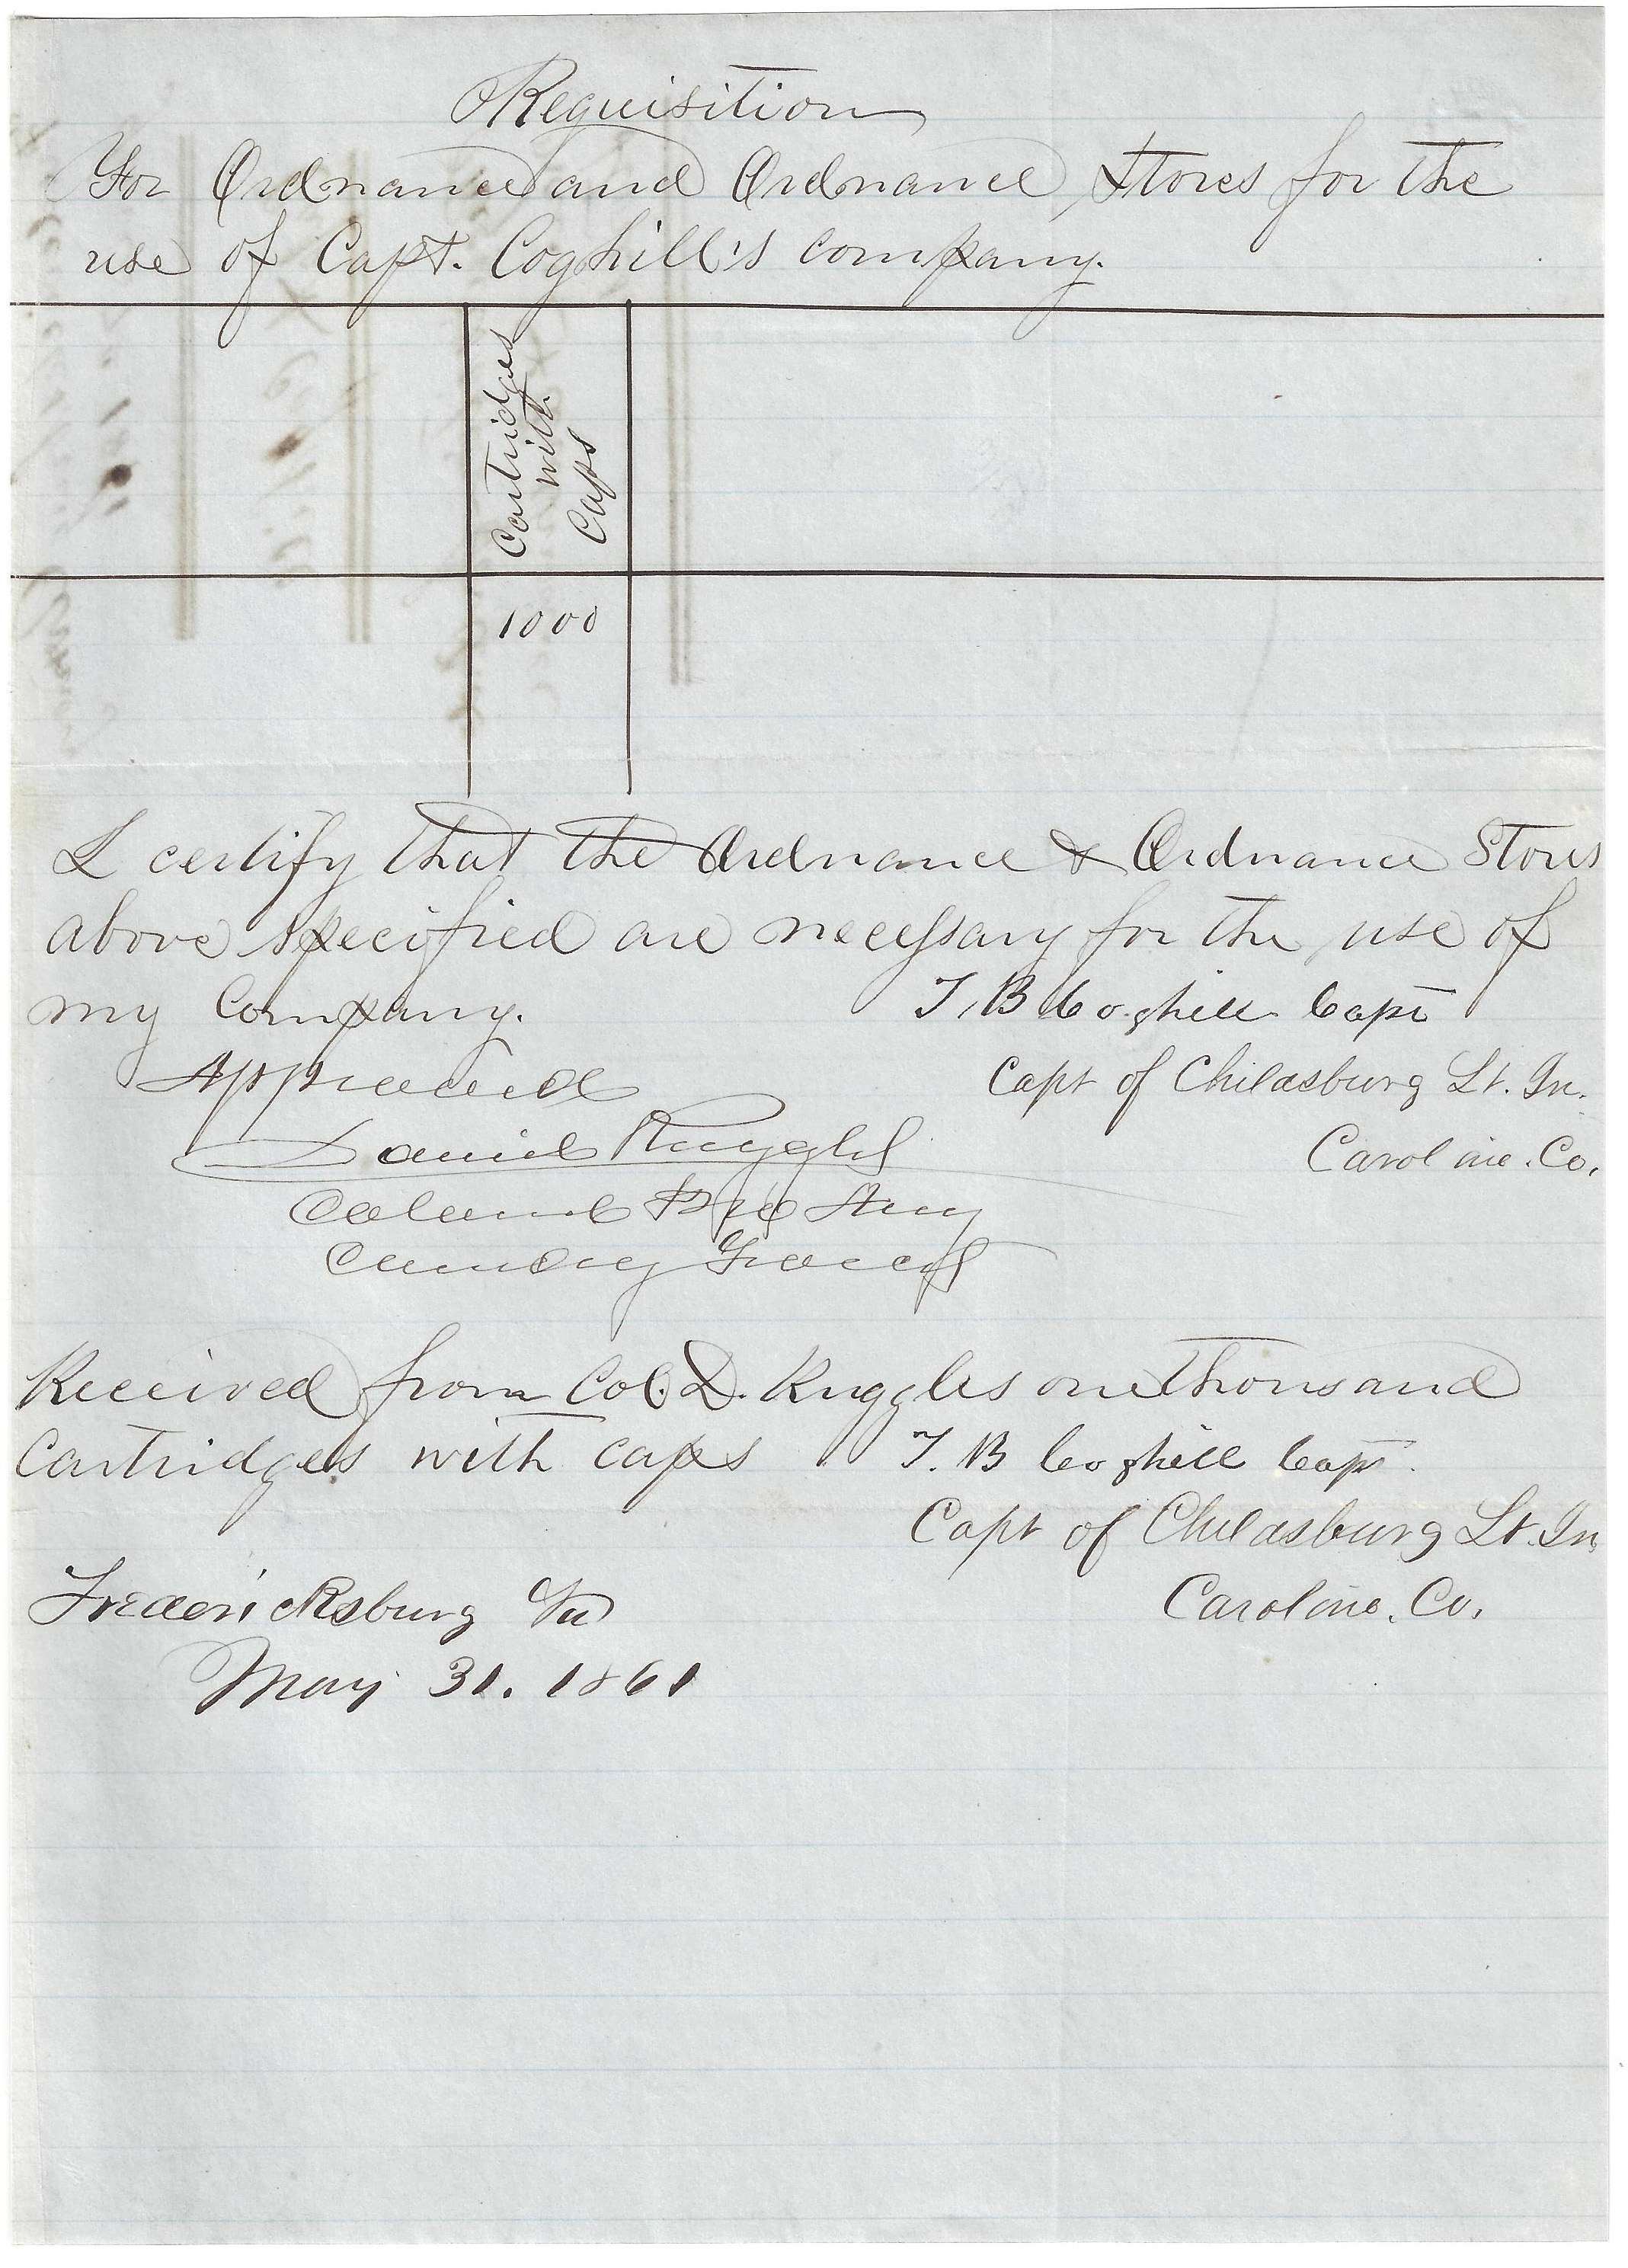 Requisition
For Ordnance and Ordnance Stores for the
use of Capt. Coghill's company.
Cartridges
with
Caps
1000
I certify that the Ordnance & Ordnance Stores
above specified are necessary for the use of
my Company.
T. B Coghill Capt
Approved
Capt of Chilasburg Lt. In.
Daniel Ruggles
Caroline. Co.
Colonel Pro Army
Comdg Forces
Received from Col. D. Ruggles one thousand
Cartridges with caps
T. B Coghill Capt.
Capt of Chilasburg Lt. In
Fredericksburg Va
Caroline. Co.
May 31. 1861